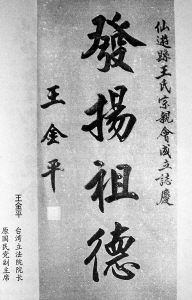 仙遊縣王氏宗親會成立誌慶
發揚祖德
王金平
王金平
台湾立法院院长
原国民党副主席